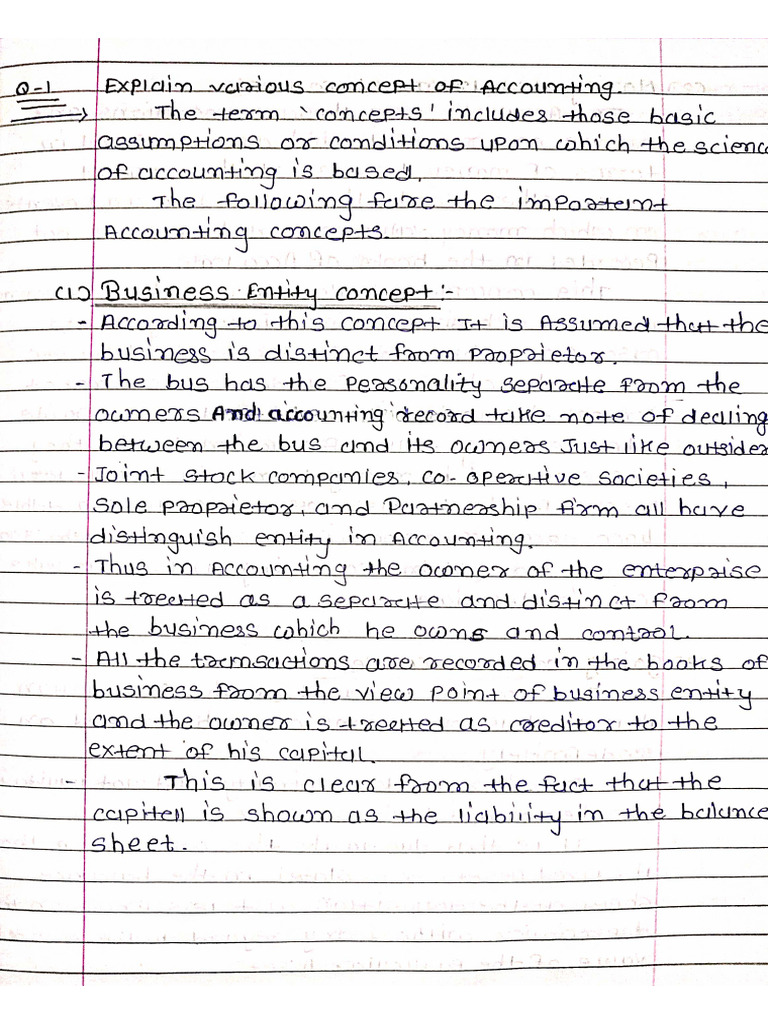 Q-1 Explain various concept of Accounting.
→ The term 'concepts' includes those basic
assumptions or conditions upon which the scienc
of accounting is based.
The following fare the important
Accounting concepts.
(1) Business Entity concept :-
- According to this concept It is Assumed that the
business is distinct from proprietor.
- The bus has the personality separate from the
owners And accounting record take note of dealing
between the bus and its owners Just like outsider
- Joint stock companies, co-operative societies,
sole proprietor, and Partnership firm all have
distinguish entity in Accounting.
- Thus in Accounting the owner of the enterprise
is treated as a separate and distinct from
the business which he owns and control.
- All the transactions are recorded in the books of
business from the view point of business entity
and the owner is treated as creditor to the
extent of his capital.
- This is clear from the fact that the
capital is shown as the liability in the balance
sheet.